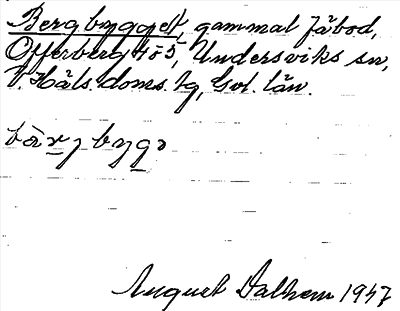 Bergbygget, gammal fäbod,
Offerberg 4 o 5, Undersviks sn,
V. Häls. doms. tg, Gvl. län.
bàrjbygə
August Dalhem 1947